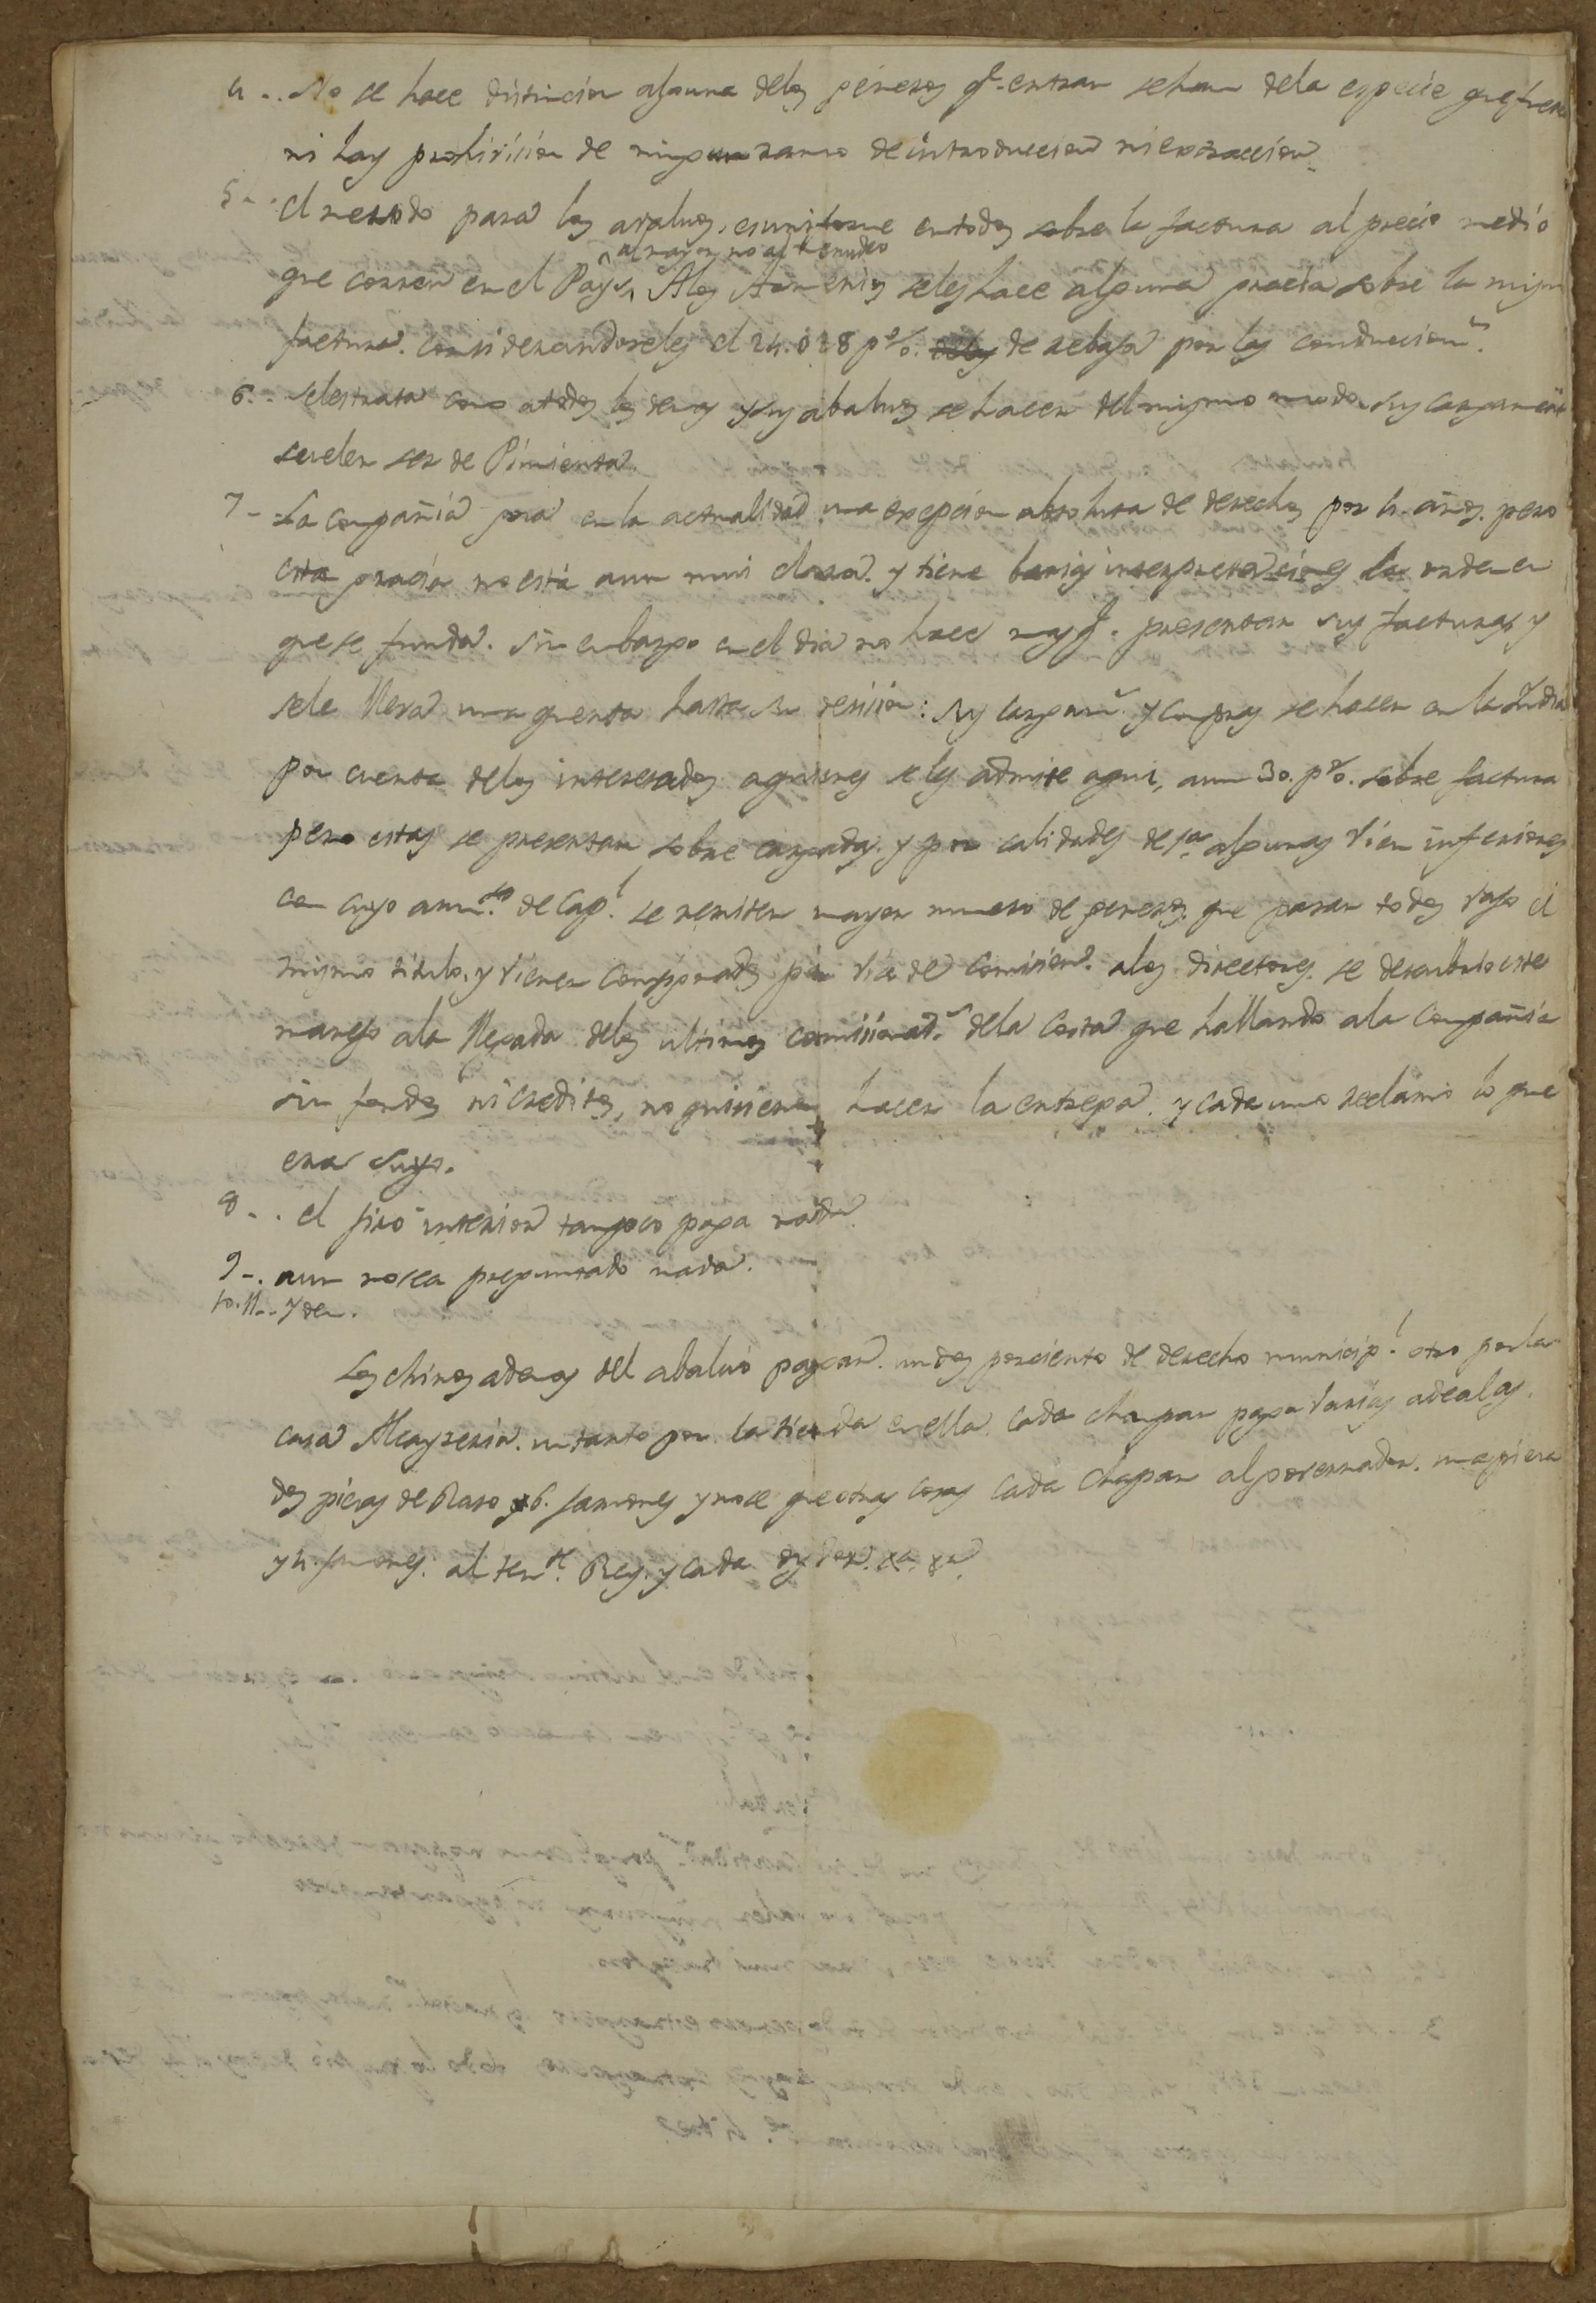 4 -. No se hace distincion alguna delos generos q.e entran sehan dela especie que fueren
ni hay prohivision de ningun ramo de introduccion ni extraccion.
5 -. el metodo para los avaluos, es uniforme entodos sobre la factura al precio medio
al mayor no al menudeo
que corren en el Pays, Alos Armenios seles hace alguna gracia sobre la misma
factura. considerandoseles el 24. o 28 p%. de rebaja por las conduccion.s
6 -. seles trata como atodos los demas y sus abaluos se hacen del mismo modo. sus cargamen.tos
suelen ser de Pimienta.
7 - La compañia goza en la actualidad una excepcion absoluta de derechos por 4. años. pero
esta gracia no está aun mui clara. y tiene barias interpretaciones la orden en
que se funda. sin enbargo en el dia no hace mas q.e presentar sus facturas y
sele lleva una quenta hasta su desision: sus cargam.s y compras se hacen en la India
por cuenta delos interesados aquienes seles admite aqui, aun 30. p%. sobre factura
pero estas se presentan sobre cargadas. y por calidades de 1.a algunas vien inferiores
con cuyo aum.to de Cap.l se remiten mayor numero de generos. que pasan todos vajo el
mismo titulo. y vienen consignados por via de comision. alos directores. se descubrio este
manejo ala llegada delos ultimos comisionad.s dela Costa que hallando ala Compañia
sin fondos ni creditos, no quisieron hacer la entrega. y cada uno reclamó lo que
era suyo.
8 -. el giro interior tampoco paga nada.
9 -. aun no sea preguntado nada.
10. 11 -. Yden.
Los chinos ademas del abaluo pagan. un dos porciento de derecho municip.l otro por la
casa Alcayseria. un tanto por la tienda en ella. Cada champan paga varias adealas.
dos piezas de Raso y 6. jamones y nose que otras cosas cada champan al governador. una pieza
y 4. jamones. al ten.te Rey. y cada oydor. &.a &.a